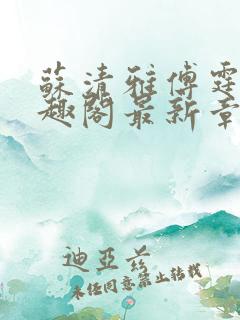 蘇清雅傅霆
趣閣最新章
迪亞茲
未经同意禁止转载